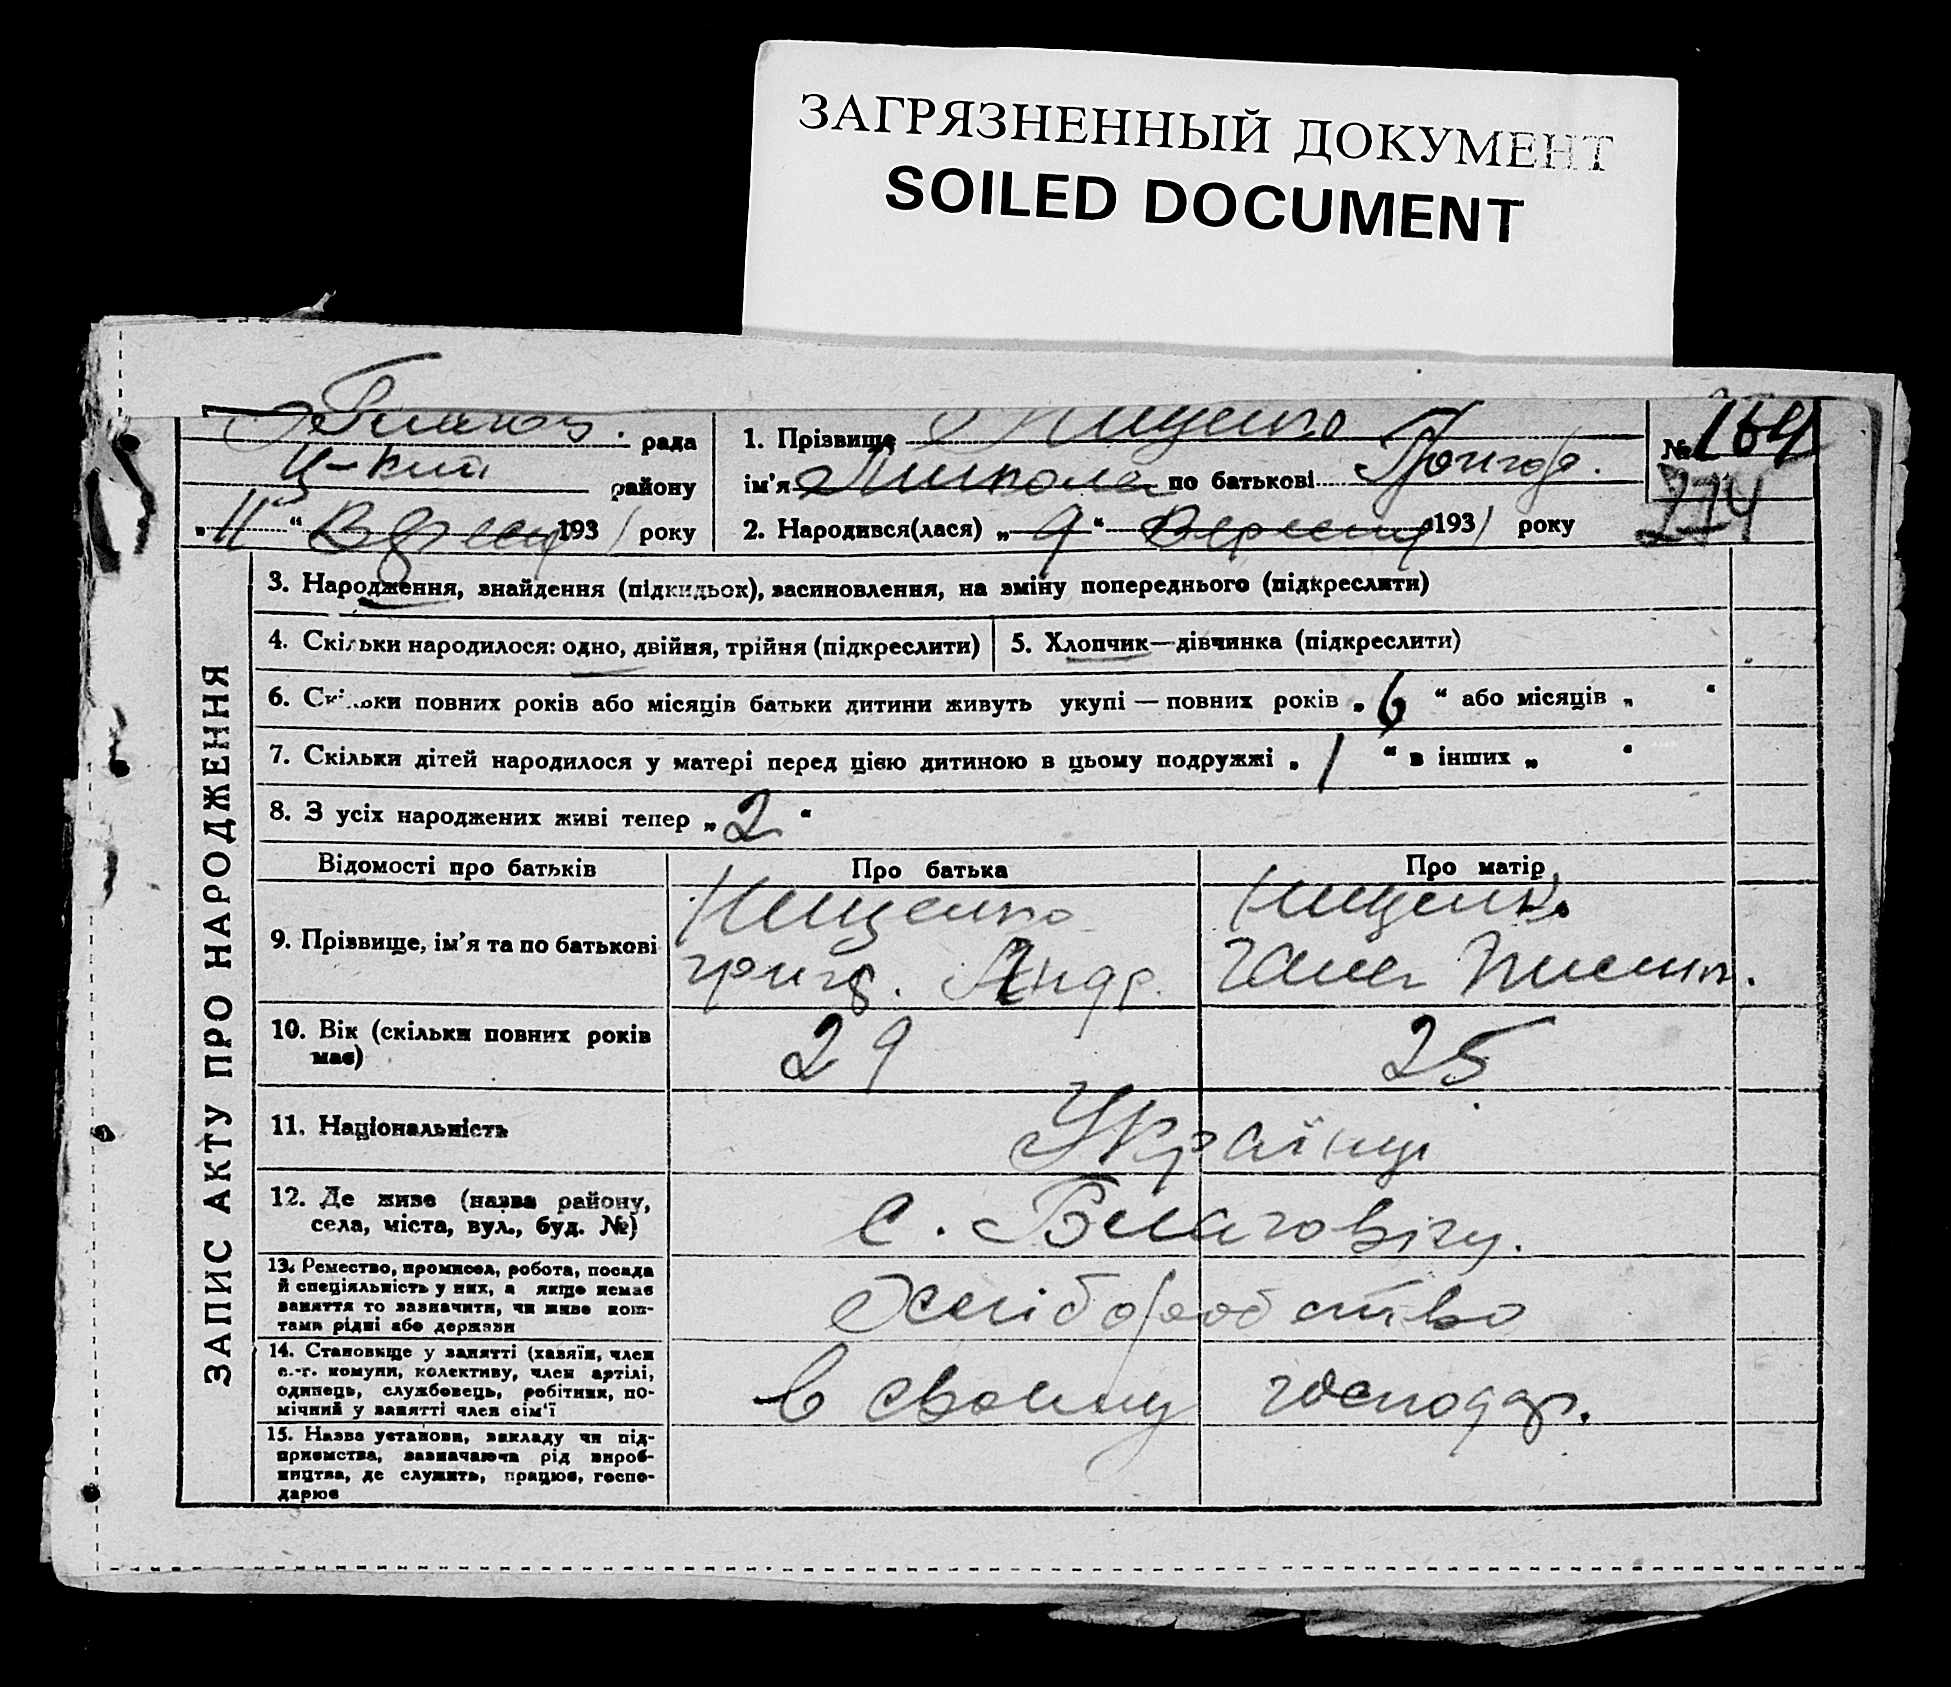 ЗАГРЯЗНЕННЫЙ ДОКУМЕНТ
SOILED DOCUMENT
рада
Ц-кий району
„11“ Вересня 1931 року
1. Прізвище Нищенко
ім'я Микола по батькові Григор.
2. Народився(лася) „9“ Вересня 1931 року
№ 164
274
ЗАПИС АКТУ ПРО НАРОДЖЕННЯ
3. Народження, знайдення (підкидьок), засиновлення, на зміну попереднього (підкреслити)
4. Скільки народилося: одно, двійня, трійня (підкреслити)
5. Хлопчик—дівчинка (підкреслити)
6. Скільки повних років або місяців батьки дитини живуть укупі — повних років „6“ або місяців „ “
7. Скільки дітей народилося у матері перед цією дитиною в цьому подружжі „1“ в інших „ “
8. З усіх народжених живі тепер „2“
Відомості про батьків
Про батька
Про матір
9. Прізвище, ім'я та по батькові
Нищенко
Григ. Андр.
Нищенко
Ганна
10. Вік (скільки повних років
має)
29
25
11. Національність
Українці
12. Де живе (назва району,
села, міста, вул., буд. №)
с.
13. Ремество, промисел, робота, посада
й спеціяльність у них, а якщо немає
заняття то зазначити, чи живе кош-
тами рідні або держави
Хліборобство
14. Становище у занятті (хазяїн, член
с.-г. комуни, колективу, член артілі,
одинець, службовець, робітник, по-
мічний у занятті член сім'ї
в своєму господар.
15. Назва установи, закладу чи під-
приємства, зазначаючи рід вироб-
ництва, де служить, працює, госпо-
дарює